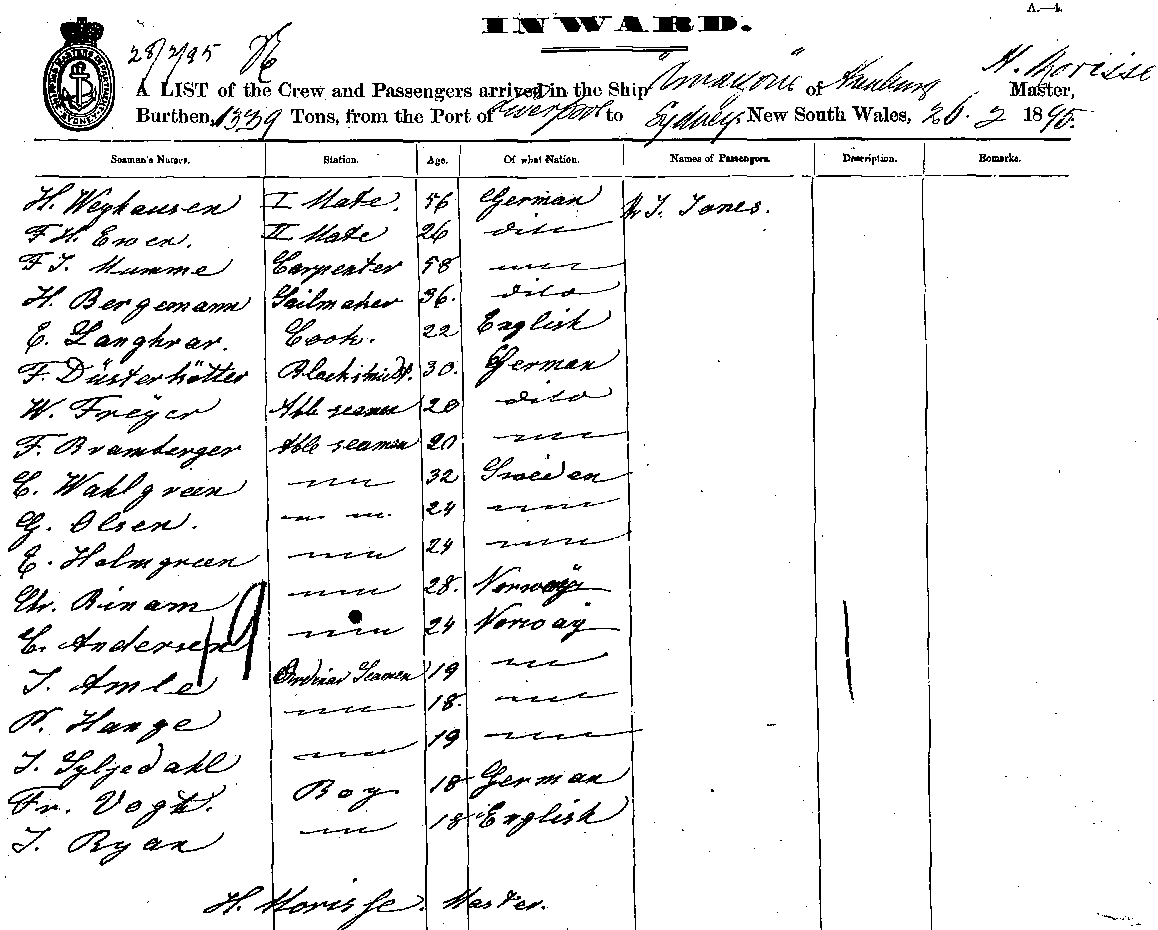 INWARD.
A.—4.
28/2/95
H. Morisse
A LIST of the Crew and Passengers arrived in the Ship of Hamburg Master,
Burthen, 1339 Tons, from the Port of Liverpool to Sydney New South Wales, 26. 2 1895.
Seaman's Names. Station. Age. Of what Nation. Names of Passengers. Description. Remarks.
H. Weyhausen I Mate. 56 German J. Jones.
F. H. Ewen. II Mate 26 dito
F. J. Mumme Carpenter 58 〃
H. Bergemann Sailmaker 36. dito
E. Langhrar. Cook. 22 English
F. Düsterhötter Blacksmidt. 30. German
W. Freÿer Able seamen 20 dito
F. Bramberger Able seamen 20 〃
C. Wahlgreen 〃 32 Sweden
G. Olsen. 〃 24 〃
E. Holmgreen 〃 24 〃
Chr. Binam 〃 28. Norwaÿ
C. Andersen 〃 24 Norway
19
J. Amle Ordinar Seamen 19 〃
P. Hange 〃 18. 〃
J. Syljedahl 〃 19 〃
Fr. Vogt. Boy 18 German
J. Ryan 〃 18 English
H. Morisse. Master.